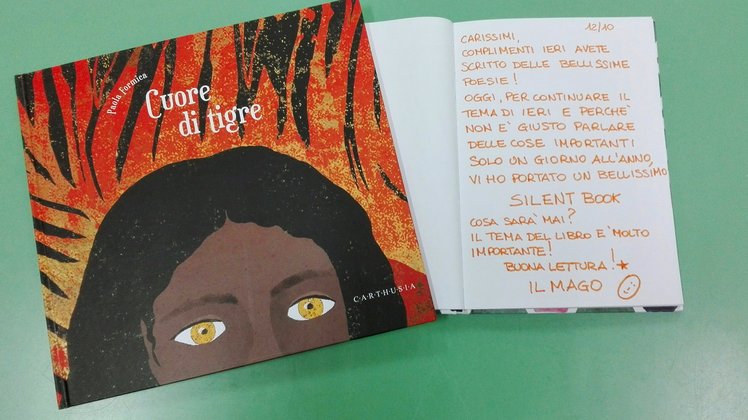 Paola Formica
Cuore
di tigre
CARTHUSIA
12/10
CARISSIMI,
COMPLIMENTI IERI AVETE
SCRITTO DELLE BELLISSIME
POESIE!
OGGI, PER CONTINUARE IL
TEMA DI IERI E PERCHÈ
NON E' GIUSTO PARLARE
DELLE COSE IMPORTANTI
SOLO UN GIORNO ALL'ANNO,
VI HO PORTATO UN BELLISSIMO
SILENT BOOK
COSA SARA' MAI?
IL TEMA DEL LIBRO E' MOLTO
IMPORTANTE!
BUONA LETTURA!
IL MAGO